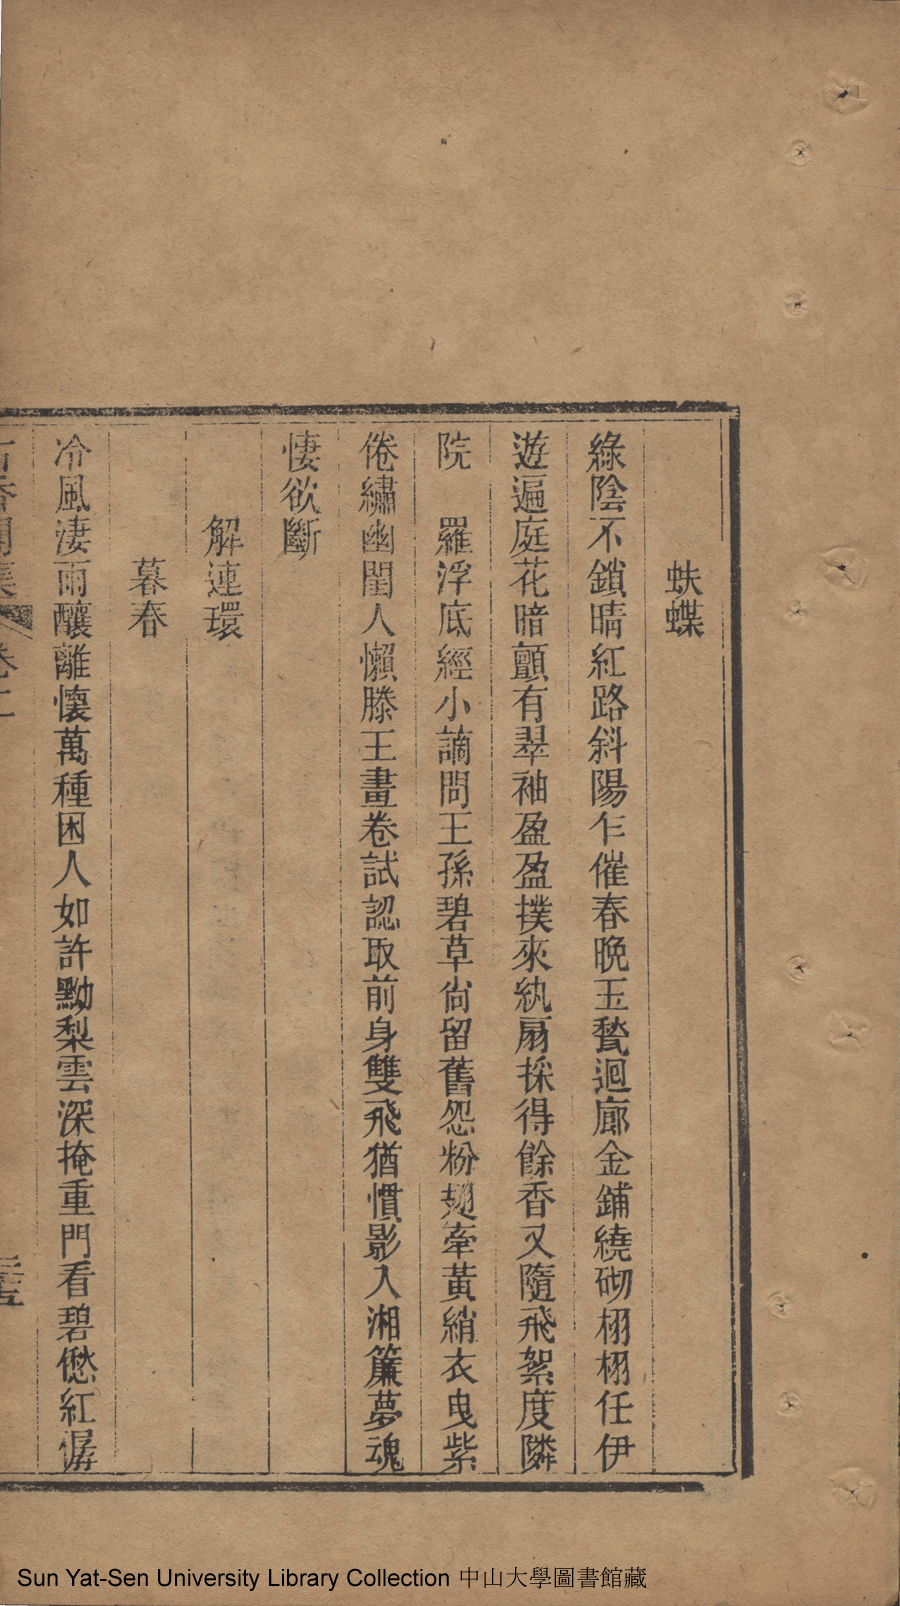 蛱蝶
綠陰不鎖晴紅路斜陽乍催春晚玉甃迴廊金鋪繞砌栩栩任伊
遊遍庭花暗顫有翠袖盈盈撲來紈扇採得餘香又隨飛絮度隣
院　羅浮底經小謫問王孫碧草尙留舊怨粉翅牽黃綃衣曳紫
倦繡幽閨人懶滕王畫卷試認取前身雙飛猶慣影入湘簾夢魂
悽欲斷
解連環
暮春
冷風淒雨釀離懷萬種困人如許黝梨雲深掩重門看碧愁紅僝
卷二
三五
Sun Yat-Sen University Library Collection 中山大學圖書館藏